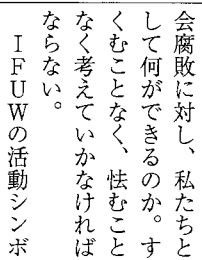 会腐敗に対し、私たちと
して何ができるのか。す
くむことなく、怯むこと
なく考えていかなければ
ならない。
　ＩＦＵＷの活動シンボ